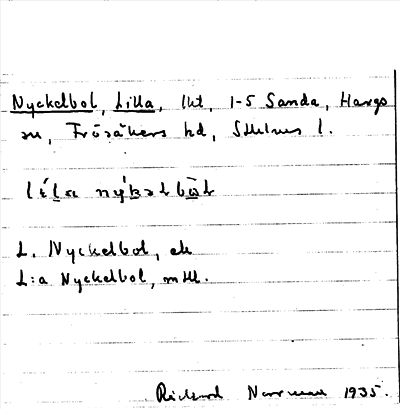 Nyckelbol, Lilla, lht, 1-5 Sanda, Hargs
sn, Frösåkers hd, Sthlms l.
líla nýkəlbωl
L. Nyckelbol, ek
L:a Nyckelbol, mtl.
Rickard Norrman 1935.